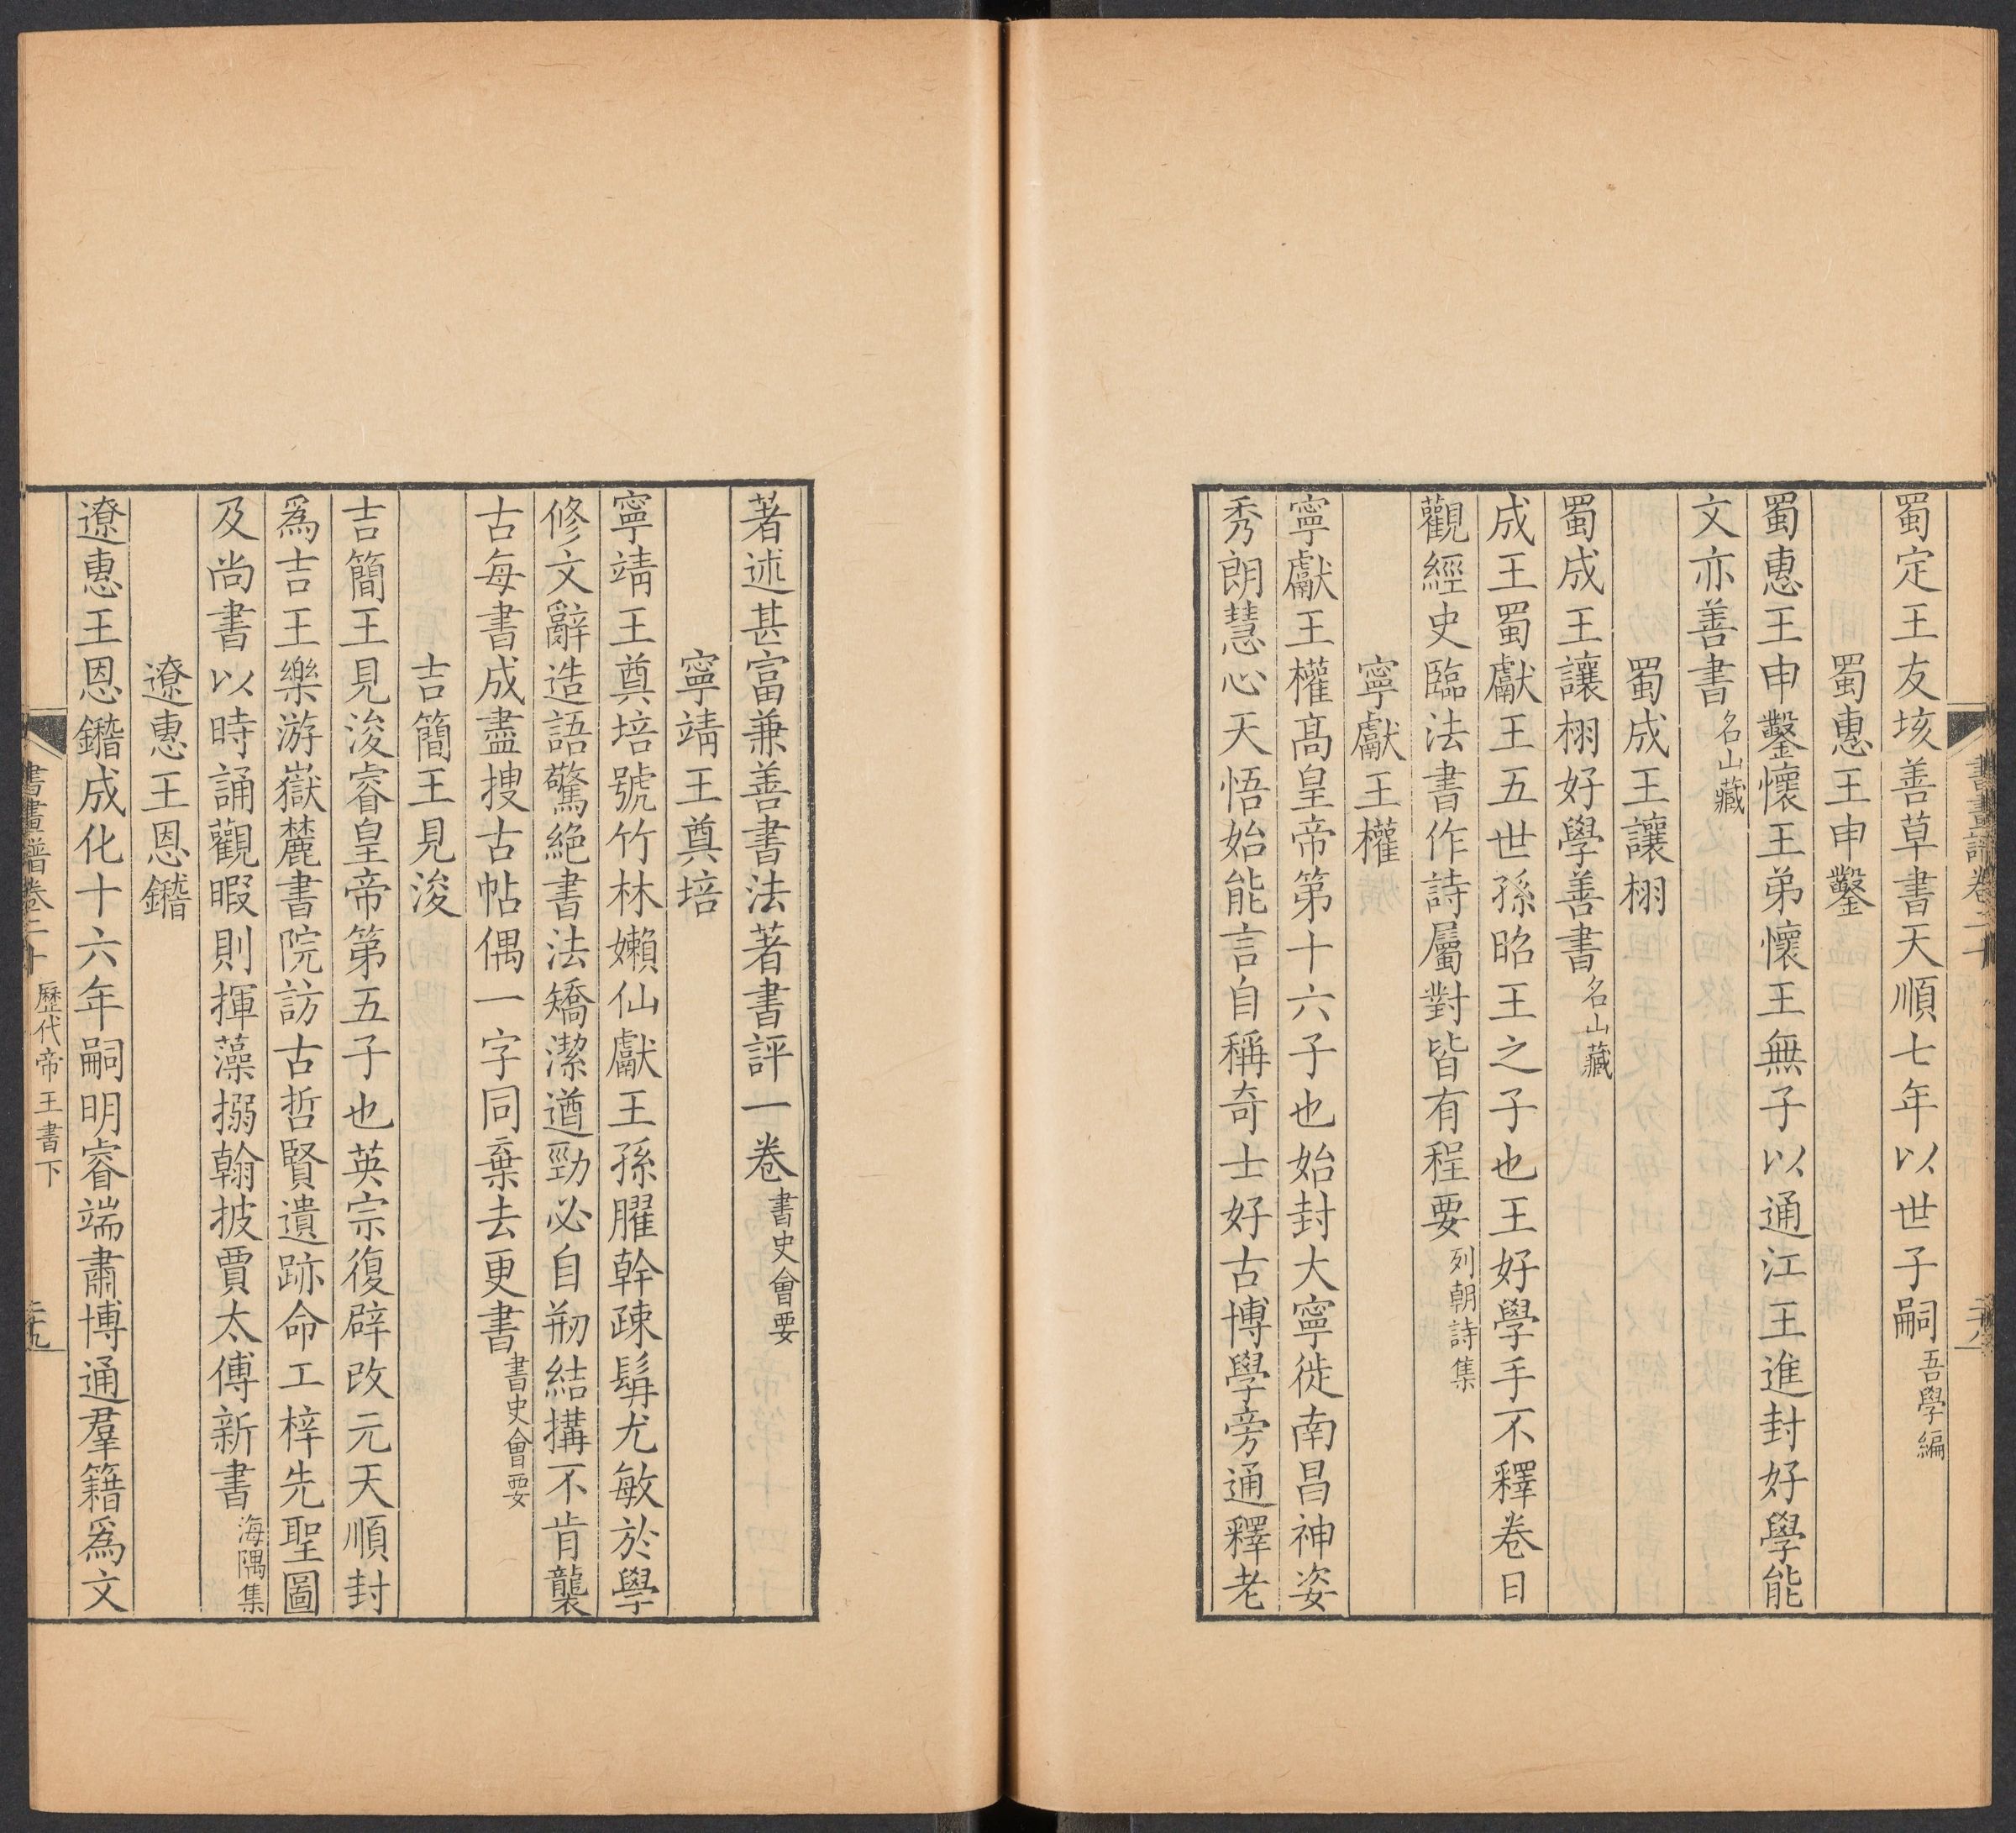 書畫譜卷二十
二十八
蜀定王友垓善草書天順七年以世子嗣吾學編
蜀惠王申鑿
蜀惠王申鑿懷王弟懷王無子以通江王進封好學能
文亦善書名山藏
蜀成王讓栩
蜀成王讓栩好學善書名山藏
成王蜀獻王五世孫昭王之子也王好學手不釋卷日
觀經史臨法書作詩屬對皆有程要列朝詩集
寧獻王權
寧獻王權高皇帝第十六子也始封大寧徙南昌神姿
秀朗慧心天悟始能言自稱奇士好古博學旁通釋老
著述甚富兼善書法著書評一卷書史會要
寧靖王奠培
寧靖王奠培號竹林嬾仙獻王孫臞幹疎髯尤敏於學
修文辭造語驚絶書法矯潔遒勁必自剏結搆不肯襲
古每書成盡搜古帖偶一字同棄去更書書史會要
吉簡王見浚
吉簡王見浚睿皇帝第五子也英宗復辟改元天順封
爲吉王樂游嶽麓書院訪古哲賢遺跡命工梓先聖圖
及尚書以時誦觀暇則揮藻搦翰披賈太傅新書海隅集
遼惠王恩鐕
遼惠王恩鐕成化十六年嗣明睿端肅博通羣籍爲文
書畫譜卷二十 歷代帝王書下
二十九